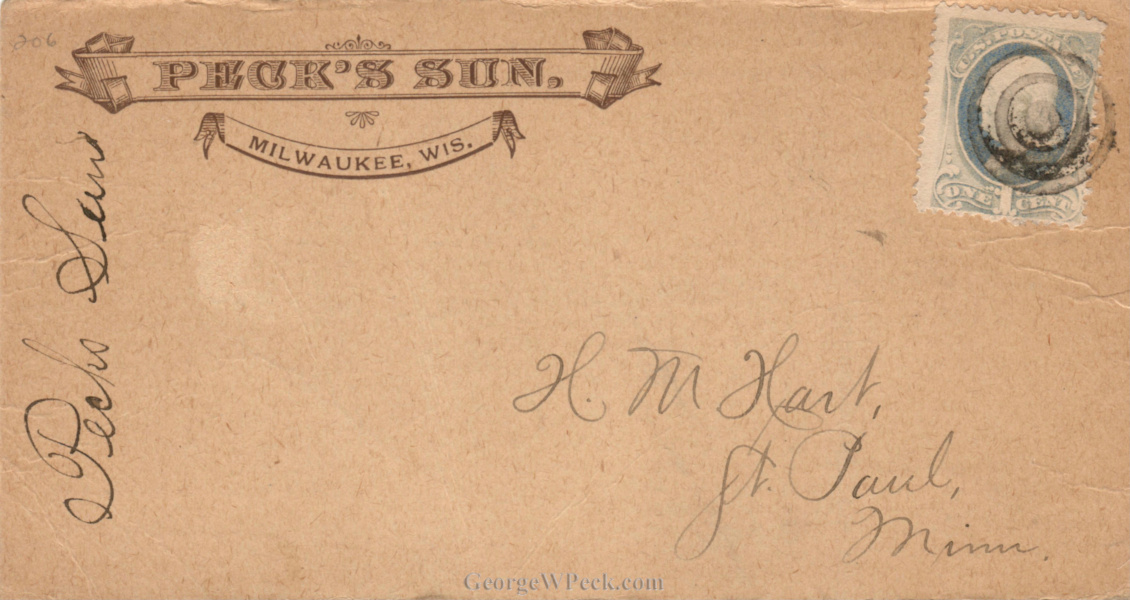 206
PECK'S SUN.
MILWAUKEE, WIS.
U.S. POSTA
ONE 1 CENT
Pecks Sun
H. M Hart,
St. Paul,
Minn.
GeorgeWPeck.com